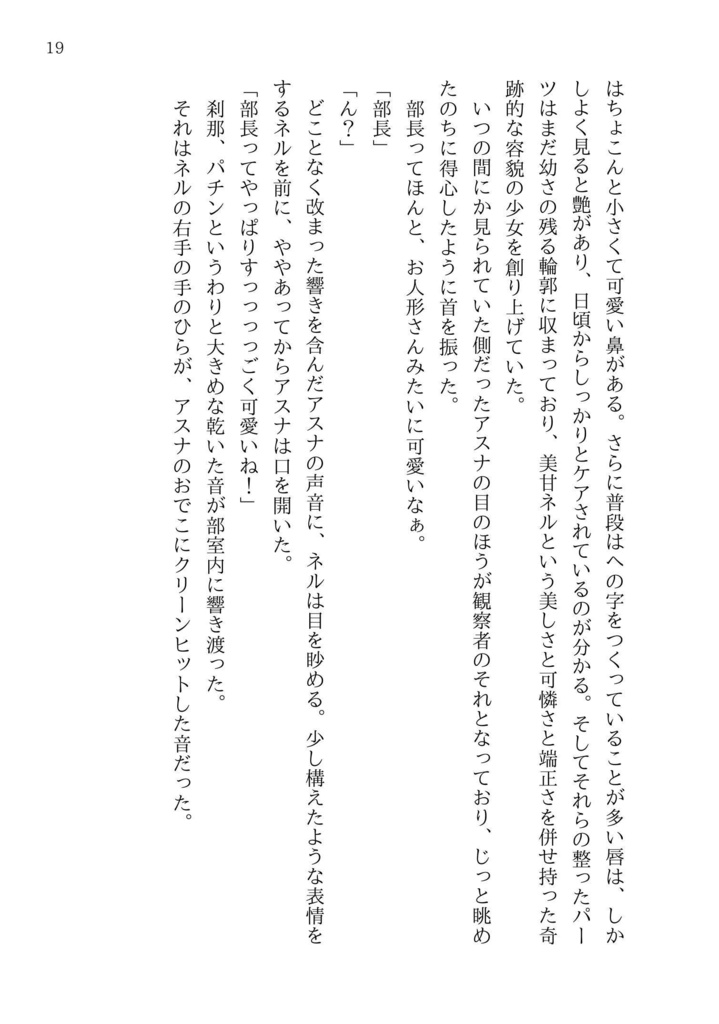 19
はちょこんと小さくて可愛い鼻がある。さらに普段はへの字をつくっていることが多い唇は、しか
しよく見ると艶があり、日頃からしっかりとケアされているのが分かる。そしてそれらの整ったパー
ツはまだ幼さの残る輪郭に収まっており、美甘ネルという美しさと可憐さと端正さを併せ持った奇
跡的な容貌の少女を創り上げていた。
いつの間にか見られていた側だったアスナの目のほうが観察者のそれとなっており、じっと眺め
たのちに得心したように首を振った。
部長ってほんと、お人形さんみたいに可愛いなぁ。
「部長」
「ん？」
どことなく改まった響きを含んだアスナの声音に、ネルは目を眇める。少し構えたような表情を
するネルを前に、ややあってからアスナは口を開いた。
「部長ってやっぱりすっっっっごく可愛いね！」
刹那、パチンというわりと大きめな乾いた音が部室内に響き渡った。
それはネルの右手の手のひらが、アスナのおでこにクリーンヒットした音だった。